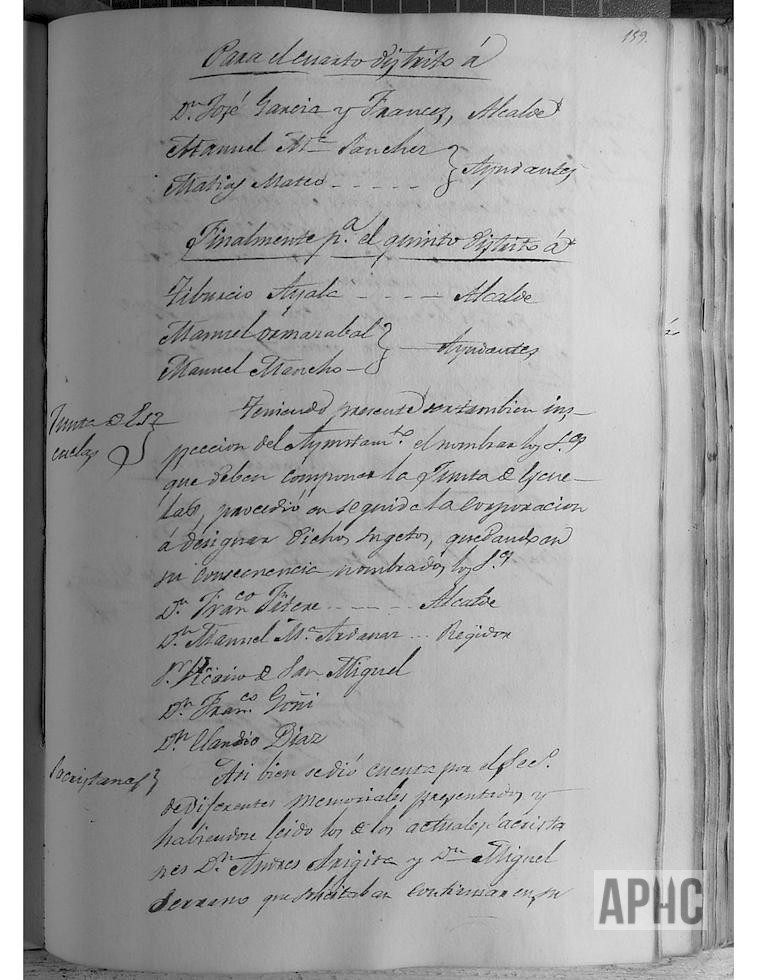 159.
Para el cuarto distrito á
Dn. José Garcia y Frances, Alcalde
Manuel Ma. Sanchez
Matias Mateo - - - - - } Ayudantes
Finalmente pa. el quinto distrito á
Tiburcio Ayala - - - - Alcalde
Manuel Ormazabal
Manuel Mancho - } - Ayudantes
Junta de Es-
cuelas
Teniendo presente ser tambien ins-
peccion del Ayuntamto. el nombrar los S.res
que deben componer la Junta de Escue-
las, procedió en seguida la corporacion
á designar dichos sugetos, quedando en
su consecuencia nombrados los S.res
Dn. Franco. - - - - Alcalde
Dn. Manuel Ma. Ardanaz ... Regidor
Sr. Vicario de San Miguel
Dn. Franco. Goñi
Dn. Claudio Diaz
Sacristanes
Asi bien se dió cuenta por el Seco.
de diferentes memoriales presentados y
habiendose leido los de los actuales sacrista
nes Dn. Andres Arigita y Dn. Miguel
Serrano que solicitaban continuar en su
APHC